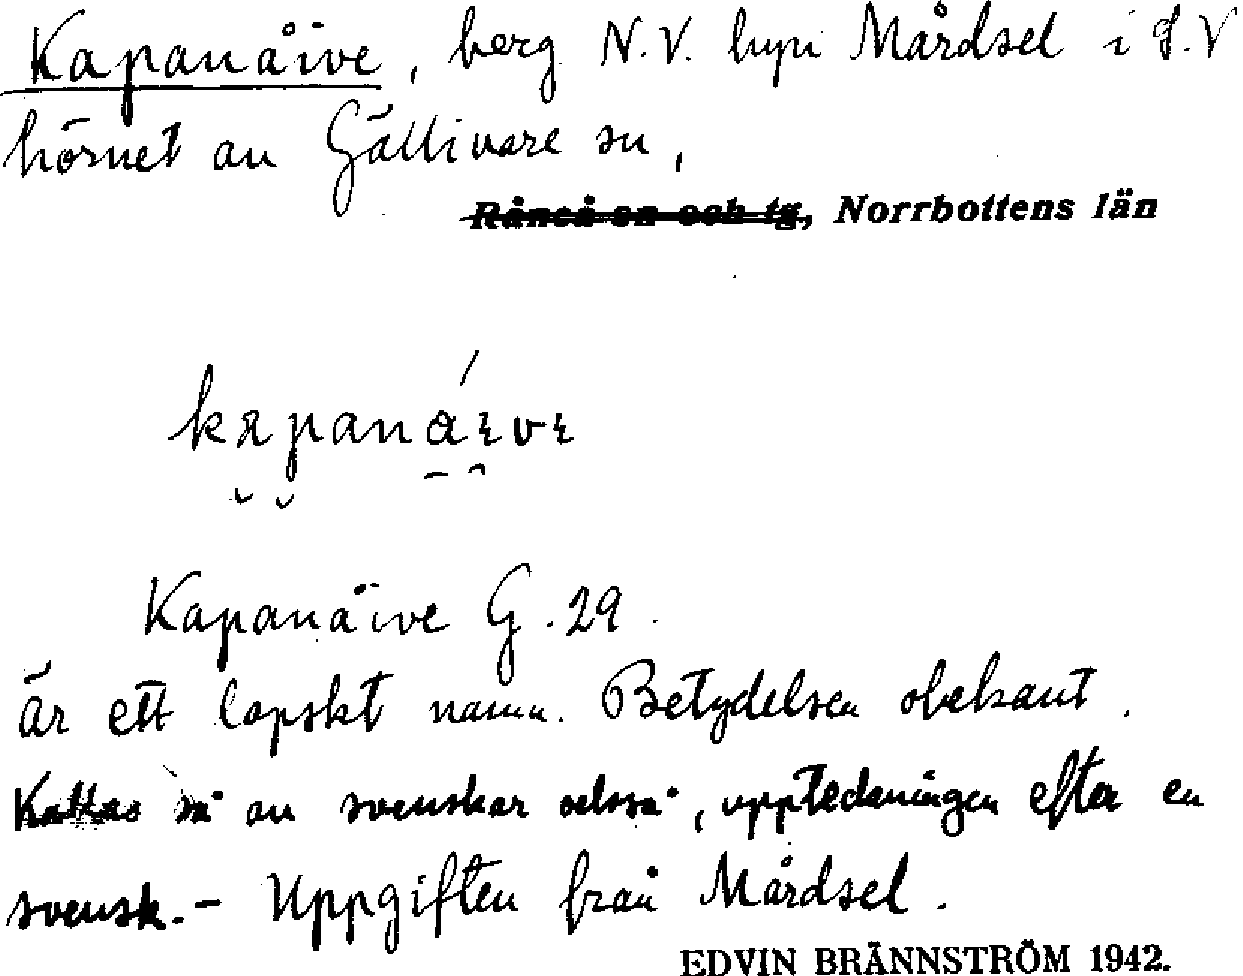 Kapanåive, berg N.V. byn Mårdsel i S.V
hörnet av Gällivare sn,
Råneå sn och tg, Norrbottens län
Kapanåive G. 29.
är ett lapskt namn. Betydelsen obekant.
Kallas så av svenskar också, uppteckningen efter en
svensk. – Uppgiften från Mårdsel.
EDVIN BRÄNNSTRÖM 1942.